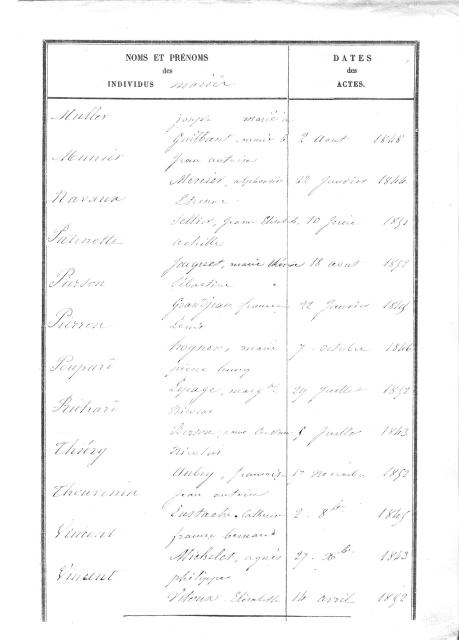 NOMS ET PRÉNOMS
des
INDIVIDUS mariés
DATES
des
ACTES.
Muller Joseph marié à
Guilbant, marie 2 Aout 1848
Munier Jean antoine
Mercier, alphonsine 22 Janvier 1844
Navaux Etienne
Sellier, 10 1851
Parinotte achille
Jacquet, marie thérèse 18 aout 1852
Pierson Sébastien
Grandjean françoise 22 Janvier 1845
Pierson Louis
marie 7 octobre 1846
Poupard pierre
Lepage, marg.te 29 Juillet 1852
Richard Nicolas
5 Juillet 1843
Thiéry Nicolas
Aubry, françoise 17 novembre 1852
Thouvenin jean antoine
Eustache Catherine 2. 8bre 1845
Vincent françois bernard
Michelet, agnès 27. xbre 1843
Vincent philippe
Vitoux Elisabeth 14 avril 1852